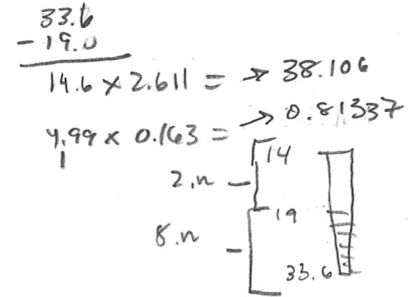 33.6
- 19.0
14.6 × 2.611 = → 38.106
4.99 × 0.163 = → 0.81337
1
14
2.n
19
8.n
33.6